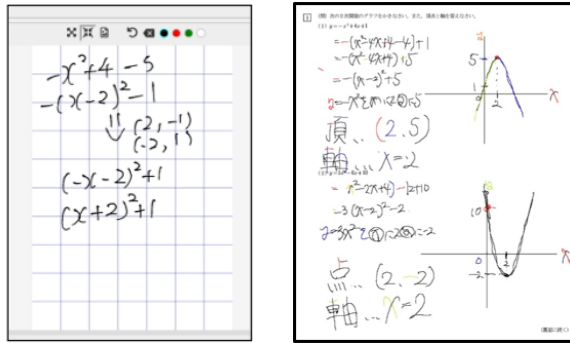 -x²+4 -5
-(x-2)²-1
(2, -1)
(-2, 1)
(-x-2)²+1
(x+2)²+1
1 (例) 次の2次関数のグラフをかきなさい。また、頂点と軸を答えなさい。
(1) y=-x²+4x+1
=-(x²-4x+4-4)+1
=-(x²-4x+4)+5
=-(x-2)²+5
頂.. (2,5)
軸... x=2
-3(x-2)²-2
点.. (2,-2)
軸... x=2
5
1
0
2
x
10
0
2
-2
x